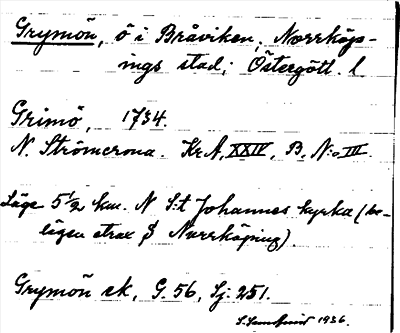 Grymön, ö i Bråviken, Norrköp-
ings stad; Östergötl. l
Grimö, 1734.
N. Strömcrona. Kr.A, XXIV, B, N:o III.
Läge 5½ km. N S:t Johannes kyrka (be-
lägen strax Norrköping).
Grymön ek, G. 56, Sj: 251.
1936.